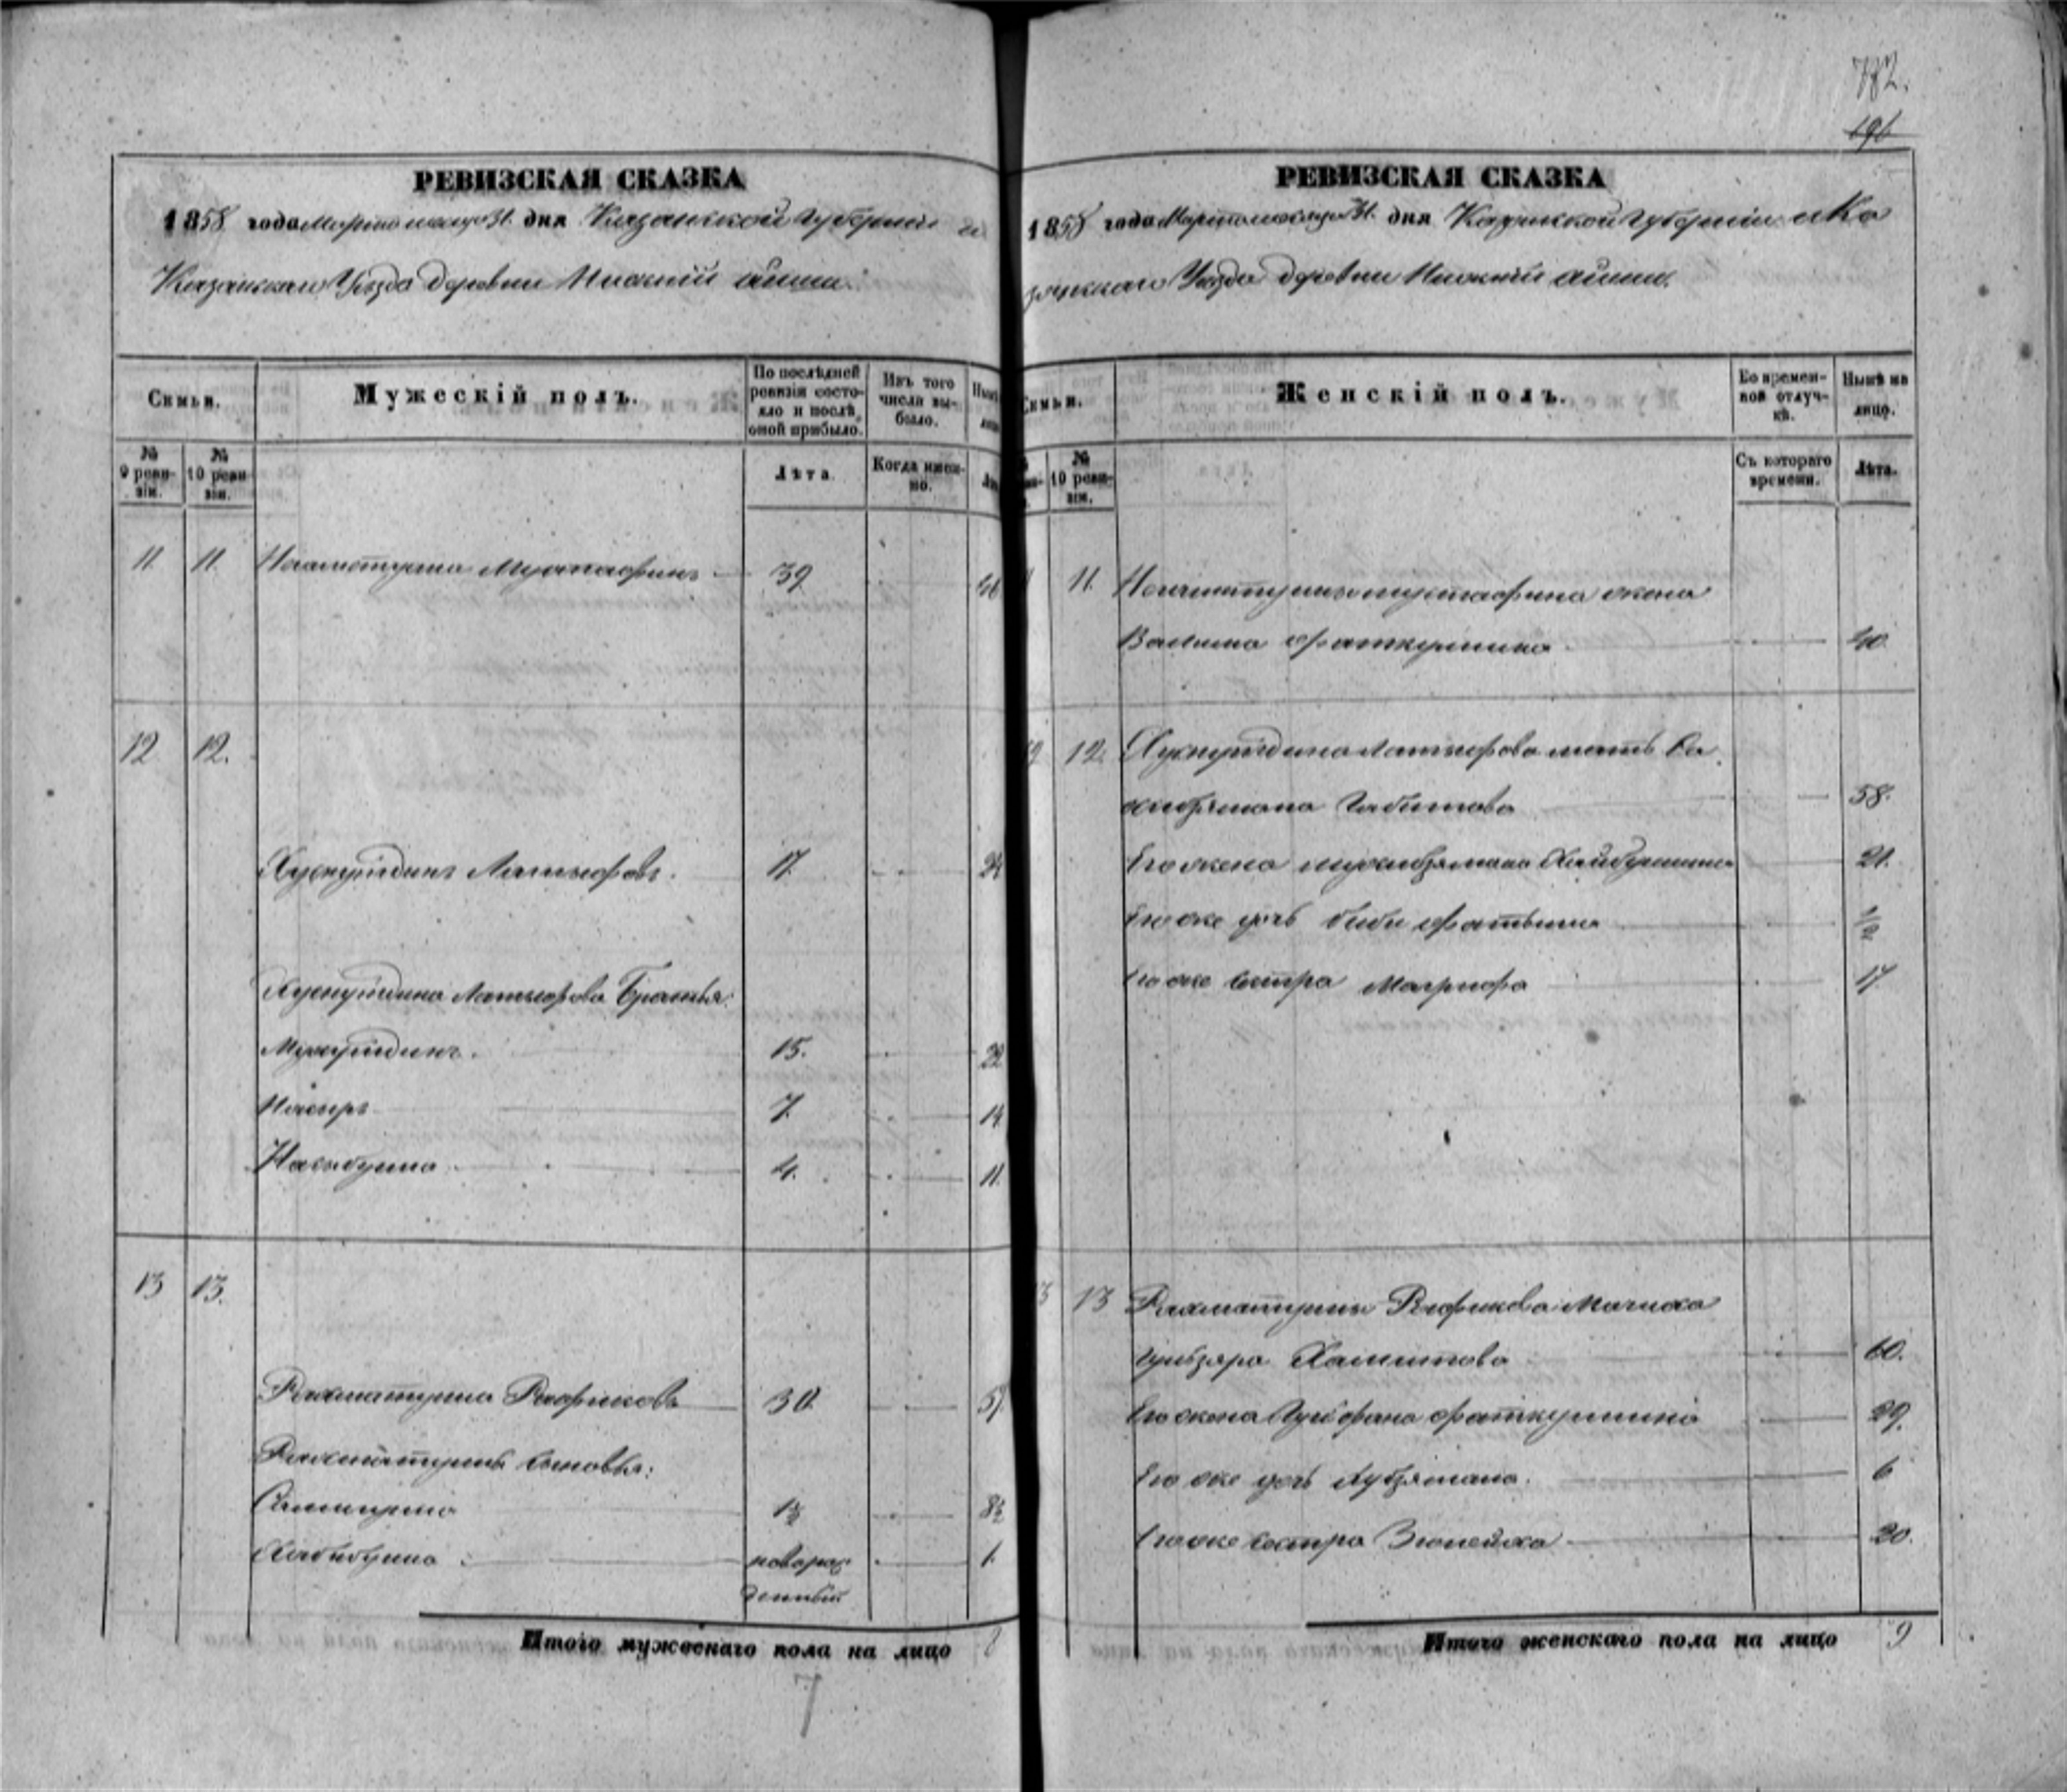 782.
196
РЕВИЗСКАЯ СКАЗКА
1858 года Марта месяца 31. дня Казанской Губернии и
Казанскаго Уезда деревни Нижний аиши.
Семьи.
Мужескій полъ.
По послѣдней ревизіи состояло и послѣ оной прибыло.
Изъ того числа выбыло.
№ 9 ревизіи.
№ 10 ревизіи.
Лѣта.
Когда именно.
11 11. Нагматулла Мустафинъ 39 46
12 12.
Хуснутдинъ Латыфовъ. 17. 24
Хуснутдина Латыфова Братья:
15. 22
Насыръ 7 14
Насыбулла 4. 11.
13 13.
Рахматулла Рафиковъ 30. 37.
Рахматуллы сыновья:
1½ 8½
Хабибулла новорож 1.
денный
Итого мужескаго пола на лицо 8
7
РЕВИЗСКАЯ СКАЗКА
1858 года Марта месяца 31. дня Казанской Губернии и Ка
занскаго Уезда деревни Нижний аиши.
Семьи.
Женскій полъ.
Во временной отлучкѣ.
Нынѣ на лицо.
10 ревизіи.
Съ котораго времени.
Лѣта.
11. Нагматуллы мустафина жена
Фаткуллина 40
12 12. Хуснутдина Латыфова мать Ба
Габитова 58.
Его жена Хайбуллина 21.
Его же дочь биби фатыма ½
Его же сестра Магруфа 17
13 Рахматуллы Рафикова Мачиха
Гульзяра Хамитова 60.
Его жена фаткуллина 29.
Его же дочь 6
Его же сестра Зюлейха 20.
Итого женскаго пола на лицо 9